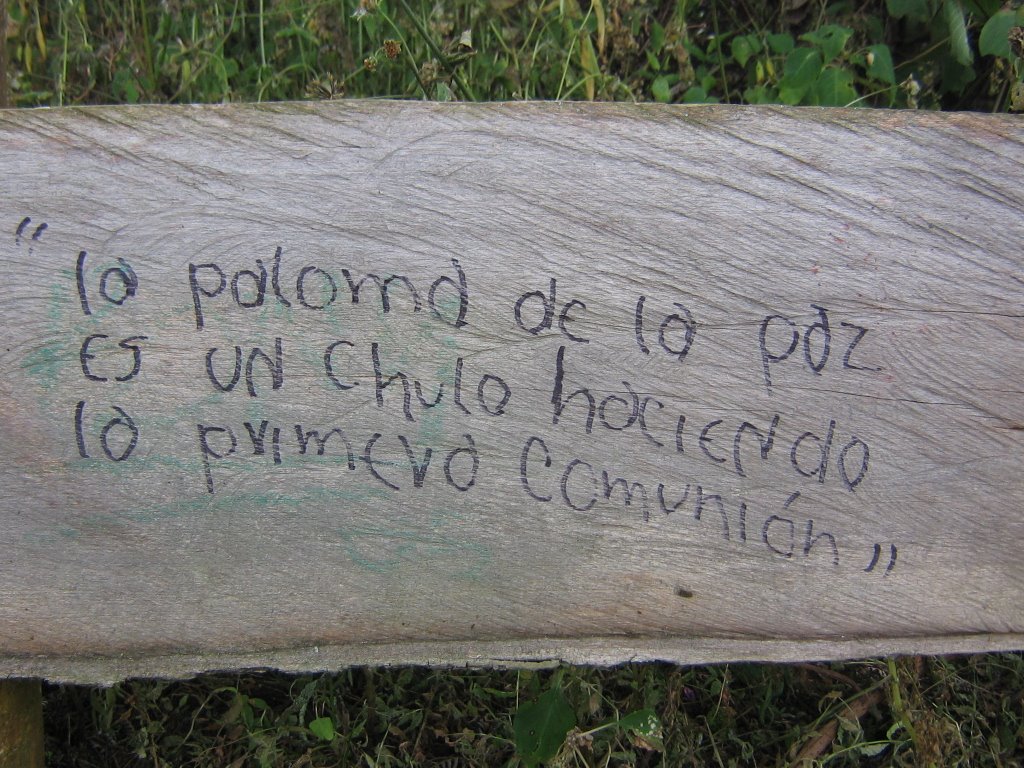 "la paloma de la paz
ES UN chulo haciENdo
la primEra comunión"